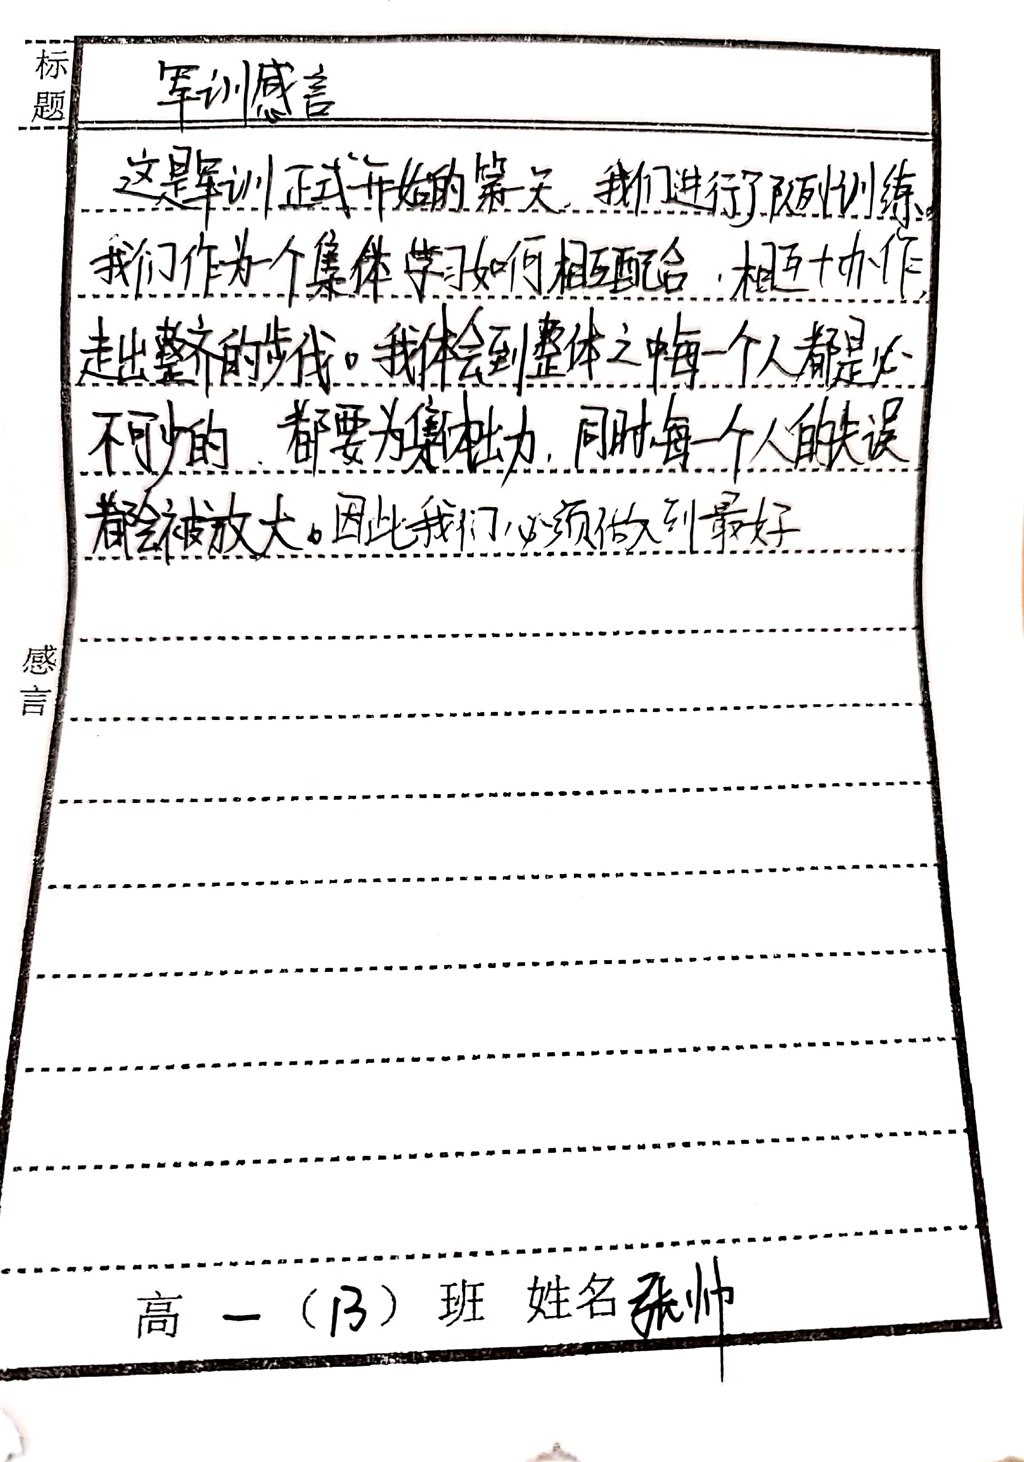 标题
军训感言
这是军训正式开始的第一天,我们进行了队列训练。
我们作为一个集体学习如何相互配合,相互协作,
走出整齐的步伐。我体会到整体之中每一个人都是必
不可少的,都要为集体出力,同时每一个人的失误
都会被放大。因此我们必须做到最好
感言
高一(13)班 姓名张帅